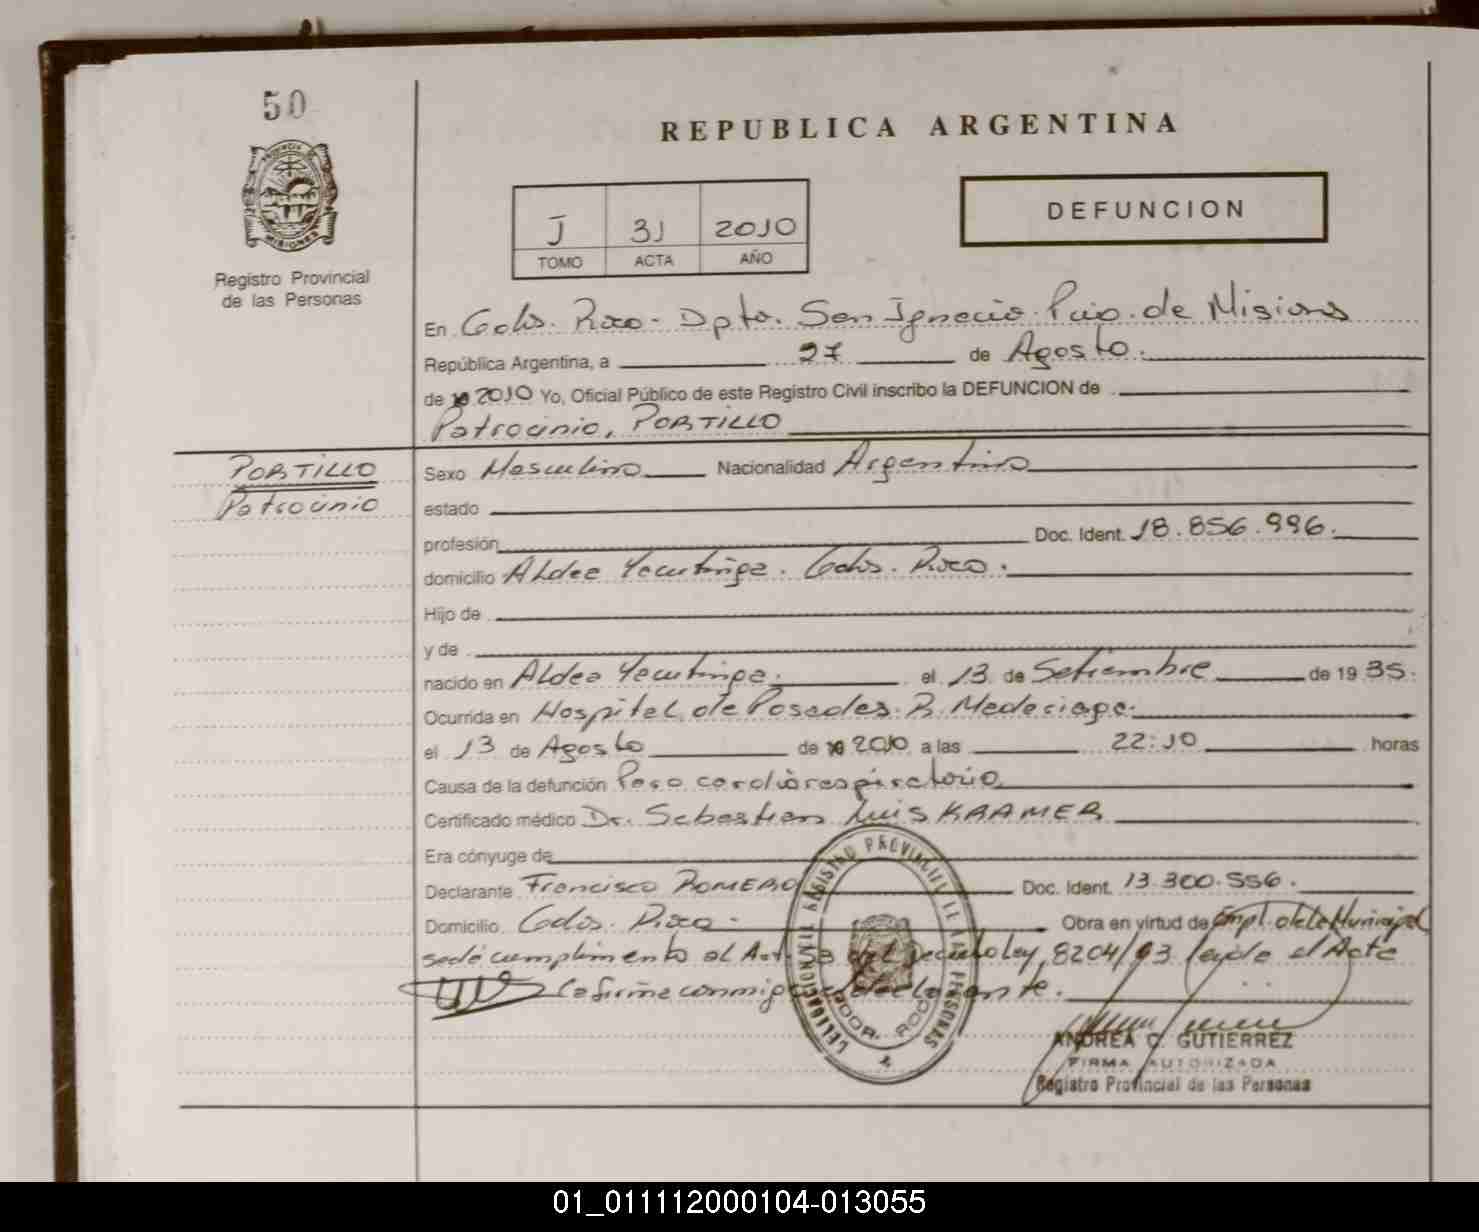 50
REPUBLICA ARGENTINA
PROVINCIA DE
MISIONES
Registro Provincial
de las Personas
J 31 2010
TOMO ACTA AÑO
DEFUNCION
En Gdor. Roca - Dpto. San Ignacio. Pcia. de Misiones
República Argentina, a 27 de Agosto.
de 2010 Yo, Oficial Público de este Registro Civil inscribo la DEFUNCION de
Patrocinio, PORTILLO
PORTILLO
Patrocinio
Sexo Masculino Nacionalidad Argentino
estado
profesión Doc. Ident. 18.856.996.
domicilio Aldea Gdor. Roca.
Hijo de
y de
nacido en Aldea el 13 de Setiembre de 1935.
Ocurrida en Hospital de Posadas. R. Madariaga.
el 13 de Agosto de 2010 a las 22:10 horas
Causa de la defunción Paro cardiorespiratorio
Certificado médico Dr. Sebastian Luis KRAMER
Era cónyuge de
Declarante Francisco ROMERO Doc. Ident. 13.300.556.
Domicilio Gdor. Roca - Obra en virtud de Empl. de la Municipal
se dé cumplimento al Art. 53 del Decreto Ley 8204/63 leyda el Acta
la firma conmigo el declarante.
DELEGACION REGISTRO PROVINCIAL DE LAS PERSONAS
GDOR. ROCA
ANDREA C. GUTIERREZ
FIRMA AUTORIZADA
Registro Provincial de las Personas
01_011112000104-013055